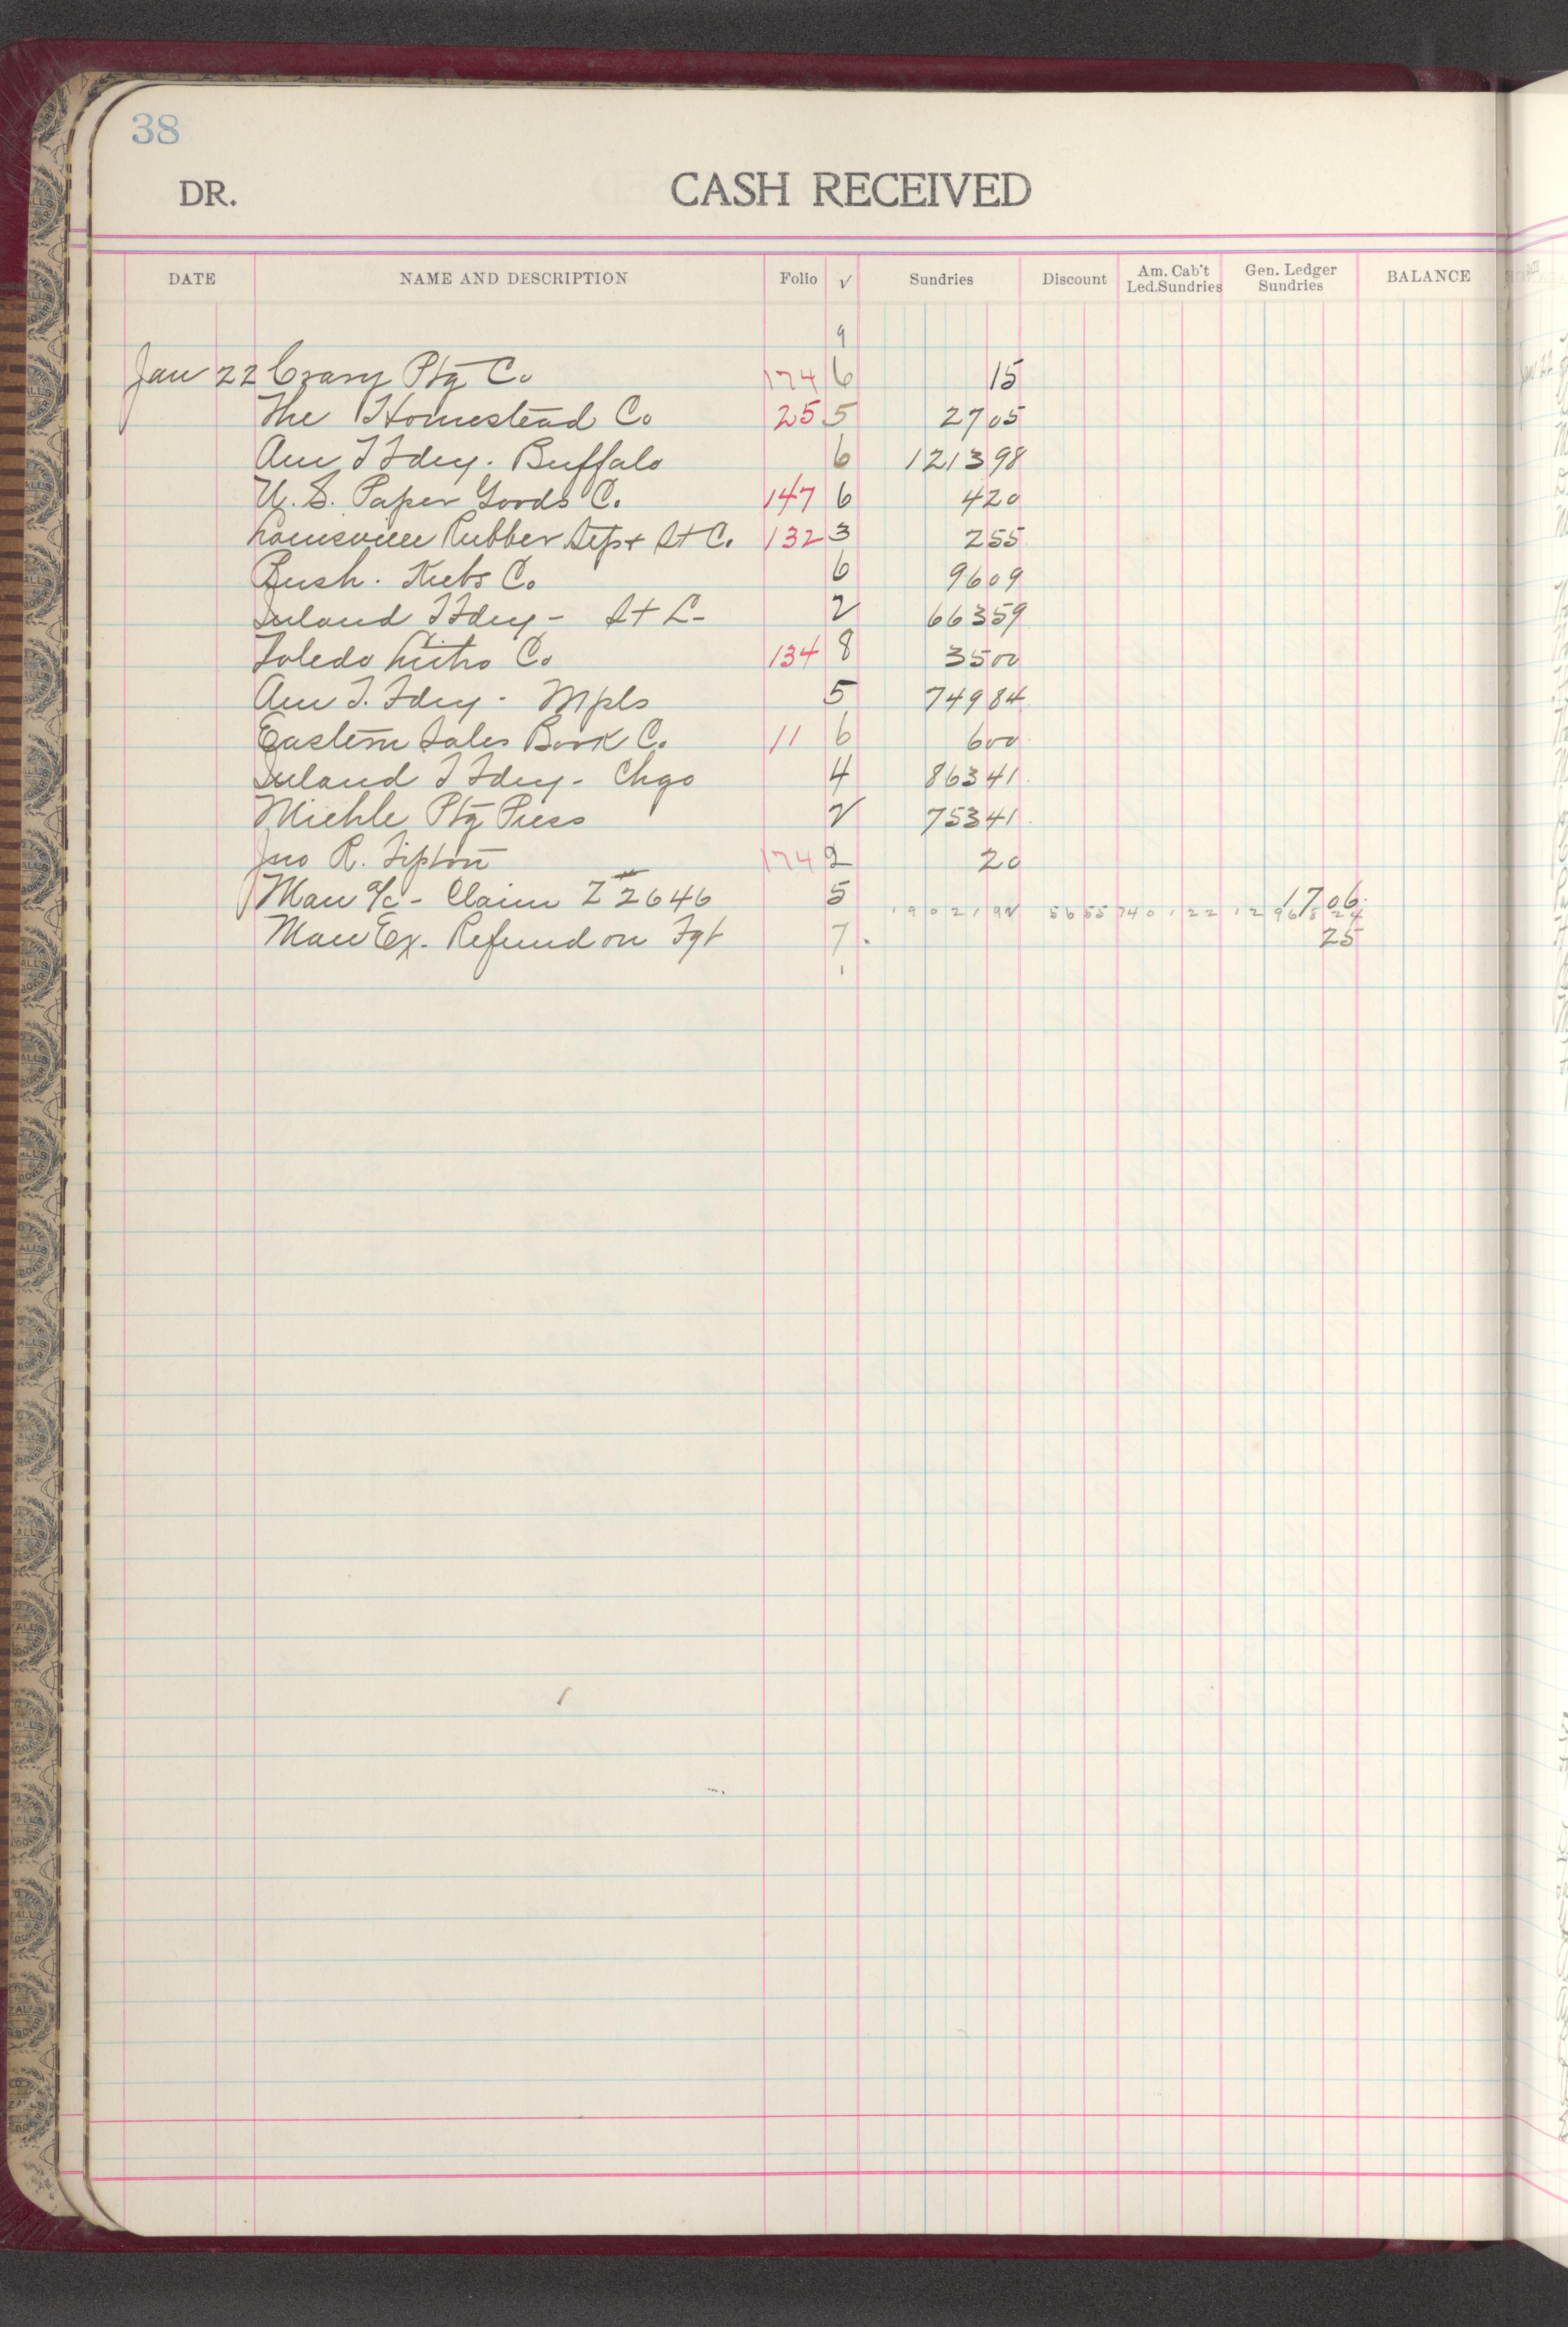 38
DR. CASH RECEIVED
DATE NAME AND DESCRIPTION Folio √ Sundries Discount Am. Cab't Led. Sundries Gen. Ledger Sundries BALANCE
9
Jan 22 Crary Ptg Co 174 6 15
The Homestead Co 25 5 27 05
Am T Fdry. Buffalo 6 1213 98
U. S. Paper Goods C. 147 6 4 20
Louisville Rubber Dept St C. 132 3 2 55
Bush. Krebs Co 6 96 09
Inland T Fdry - St L - 2 663 59
Toledo Litho Co 134 8 35 00
Am T. Fdry - Mpls 5 749 84
Eastern Sales Book C. 11 6 6 00
Inland T Fdry - Chgo 4 863 41
Miehle Ptg Press 2 753 41
Jno R. Tipton 174 2 20
Man a/c - Claim Z #2646 5 17 06
19021 92 56 55 740 1 22 1296 8 24
Man Ex. Refund on Fgt 7. 25
1